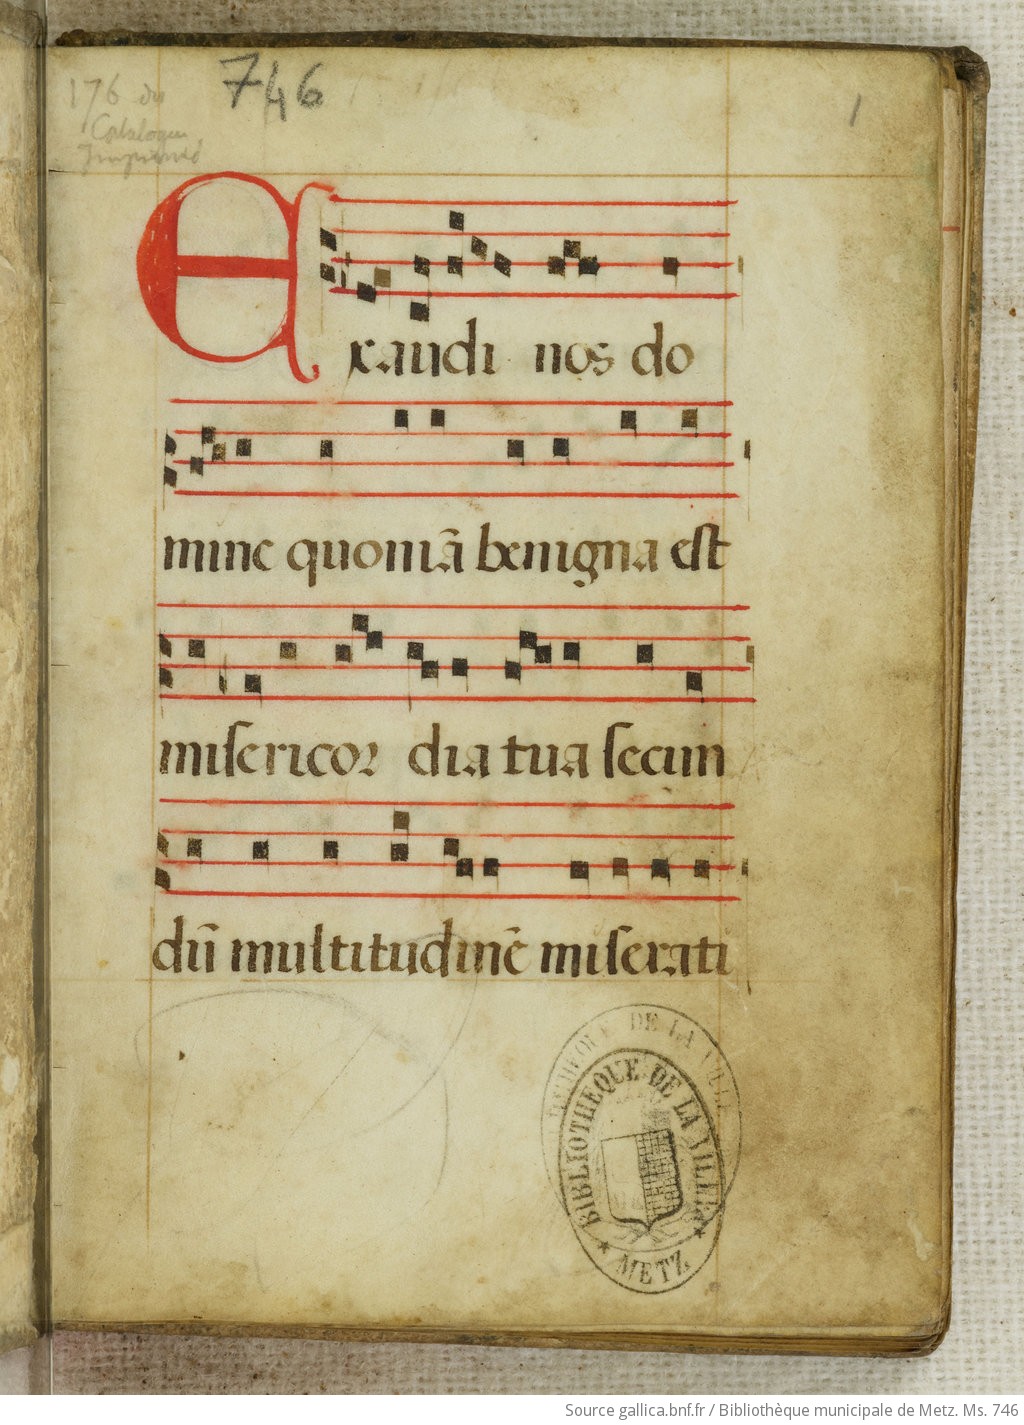 176 du
Catalogue
Imprimé
746
1
Exaudi nos do
mine quoniā benigna est
misericordia tua secun
dū multitudinē miserati
BIBLIOTHEQUE DE LA VILLE
METZ
DE LA VILLE
Source gallica.bnf.fr / Bibliothèque municipale de Metz. Ms. 746